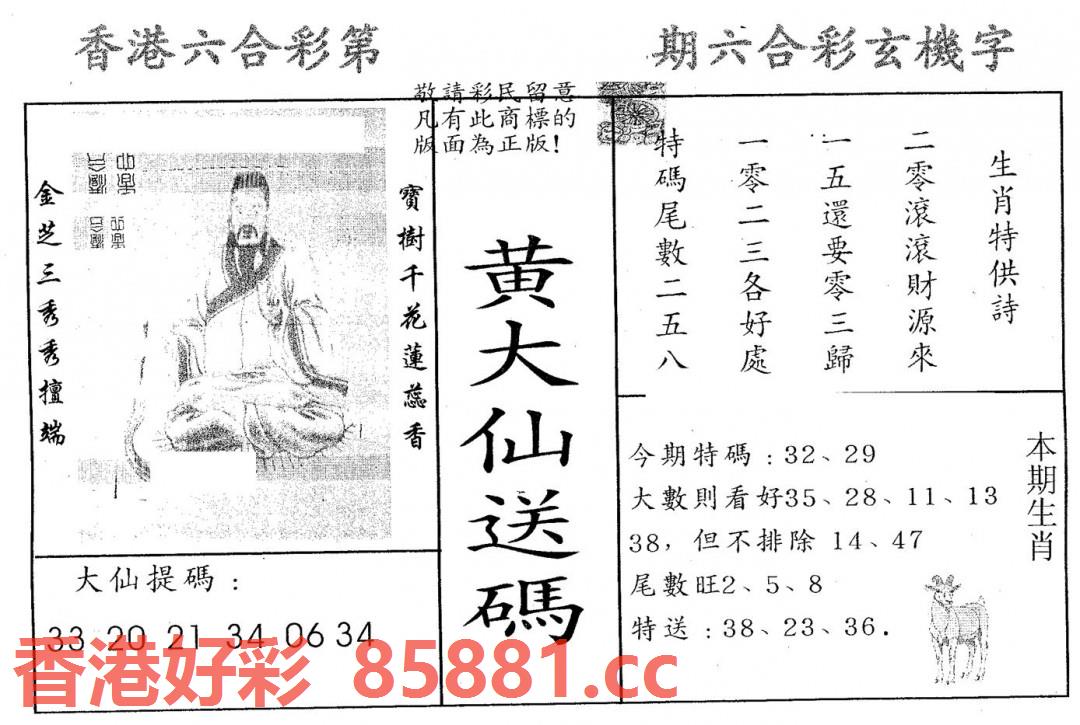 香港六合彩第
期六合彩玄機字
敬請彩民留意
凡有此商標的
版面為正版!
寶樹千花蓮蕊香
金芝三秀秀擅端
黄大仙送碼
生肖特供詩
二零滾滾財源來
一五還要零三歸
一零二三各好處
特碼尾數二五八
今期特碼：32、29
大數則看好35、28、11、13
38，但不排除 14、47
尾數旺2、5、8
特送：38、23、36.
本期生肖
大仙提碼：
33 20 21 34 06 34
香港好彩 85881.cc